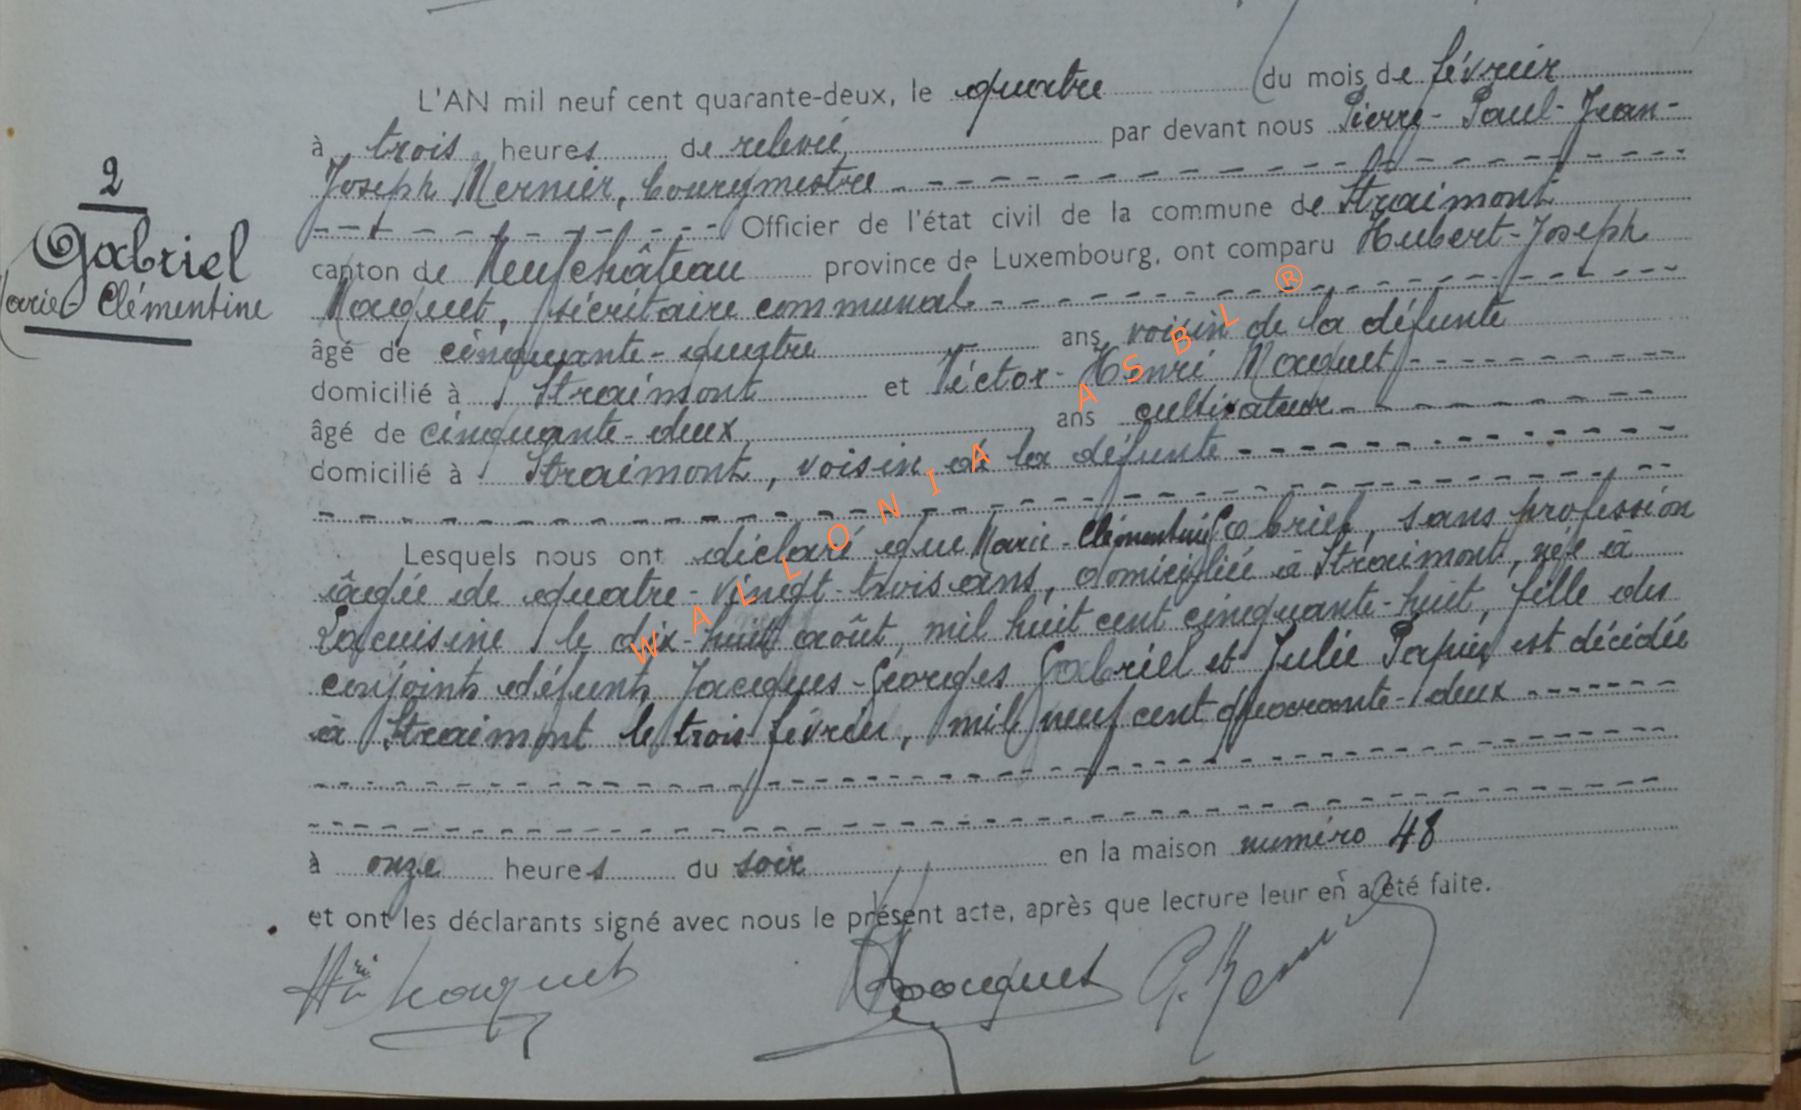 2
Gabriel
Marie-Clémentine
L'AN mil neuf cent quarante-deux, le quatre du mois de février
à trois heures de relevée par devant nous Pierre-Paul-Jean-
Joseph Mernier, bourgmestre
Officier de l'état civil de la commune de Straimont
canton de Neufchâteau province de Luxembourg, ont comparu Hubert-Joseph
Macquet, secrétaire communal
âgé de cinquante-quatre ans voisin de la défunte
domicilié à Straimont et Victor-Henri Macquet
âgé de cinquante-deux ans cultivateur
domicilié à Straimont, voisin de la défunte
Lesquels nous ont déclaré que Marie-Clémentine Gabriel, sans profession
âgée de quatre-vingt-trois ans, domiciliée à Straimont, née à
Lacuisine le dix-huit août, mil huit cent cinquante-huit, fille des
conjoints défunts, Jacques-Georges Gabriel et Julie est décédée
à Straimont le trois février, mil neuf cent quarante-deux
à onze heures du soir en la maison numéro 48
et ont les déclarants signé avec nous le présent acte, après que lecture leur en a été faite.
WALLONIA ASBL ®